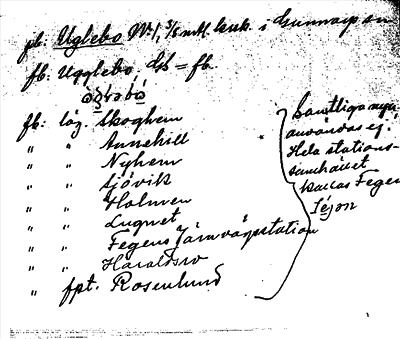 fb. Uglebo Nr 1, 3/8 mtl. krut. i Gunnarp sn
fb. Ugglebo. Gb = fb.
fb: låg. Skoghem
" " Annehill
" " Nyhem
" " Sjövik
" " Holmen
" " Lugnet
" " Fegens Järnvägsstation
" " Haraldsro
" fpt. Rosenlund
Samtliga nya,
användas ej.
Hela stations-
samhället
kallas Fegen